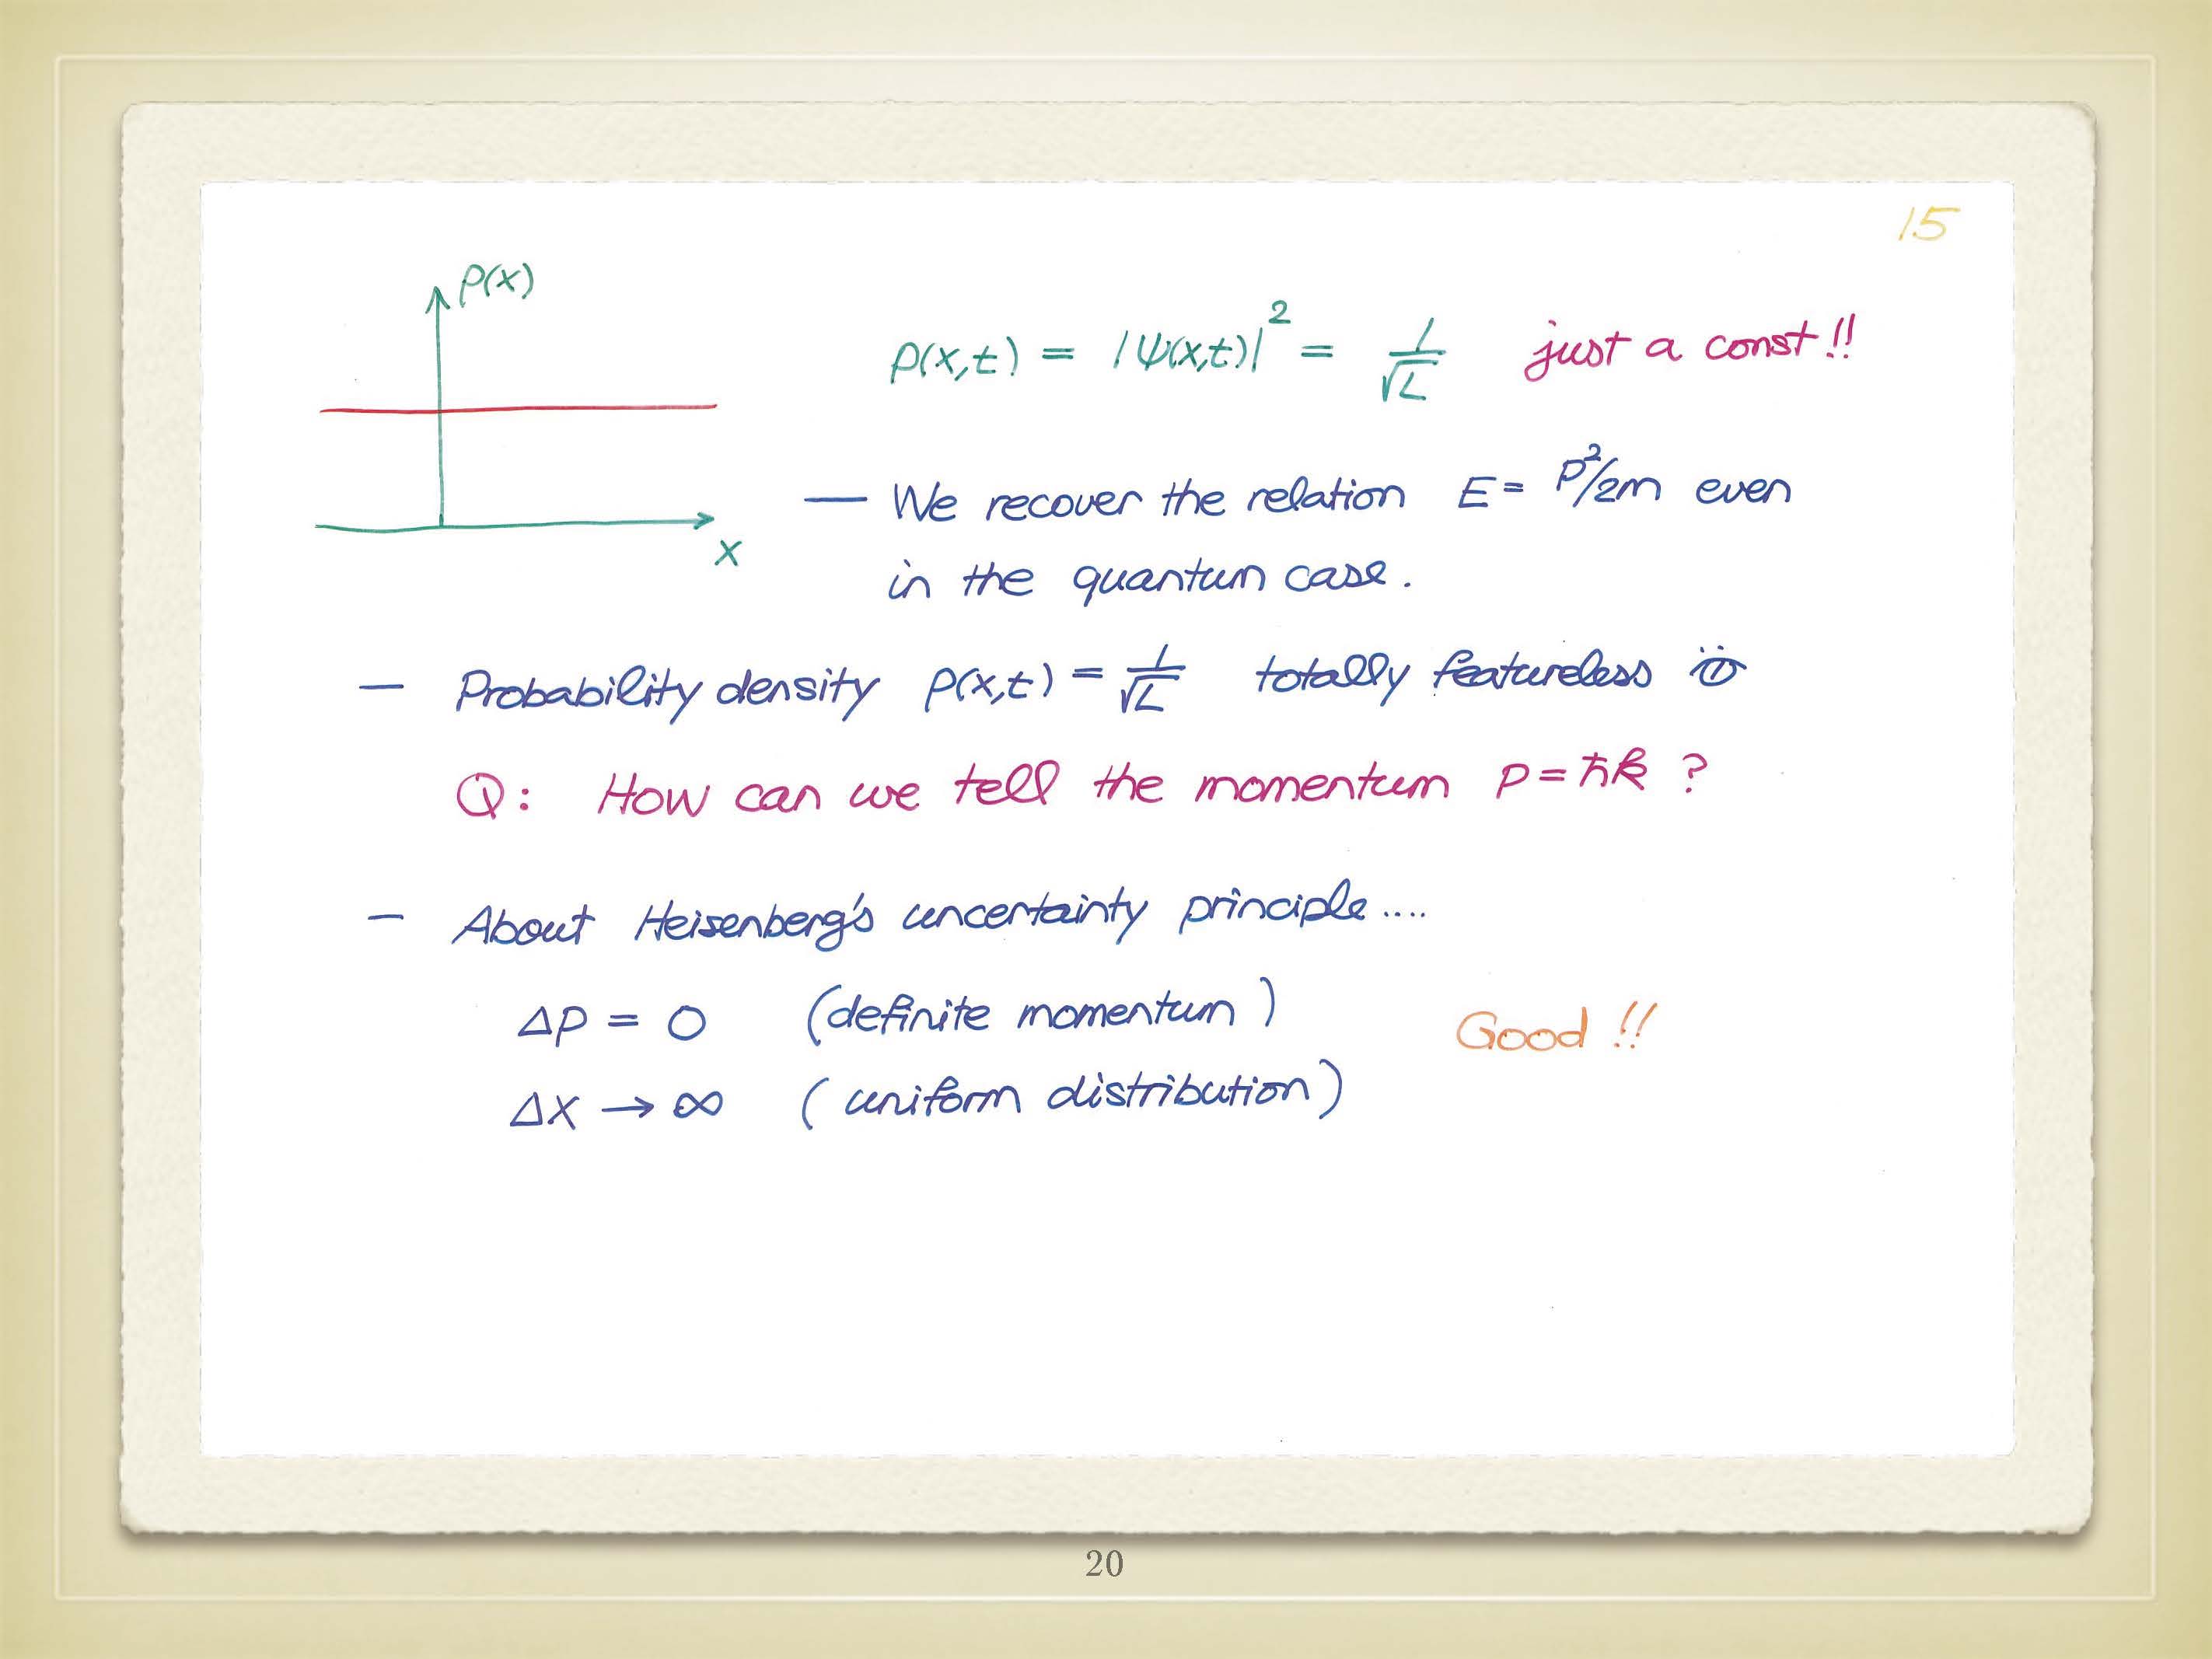 15
ρ(x)
ρ(x,t) = |ψ(x,t)|² = 1/√L just a const!!
x
— We recover the relation E = P²/2m even
in the quantum case.
— Probability density ρ(x,t) = 1/√L totally featureless
Q: How can we tell the momentum p = ħk ?
— About Heisenberg's uncertainty principle....
Δp = 0 (definite momentum)
Good !!
Δx → ∞ (uniform distribution)
20